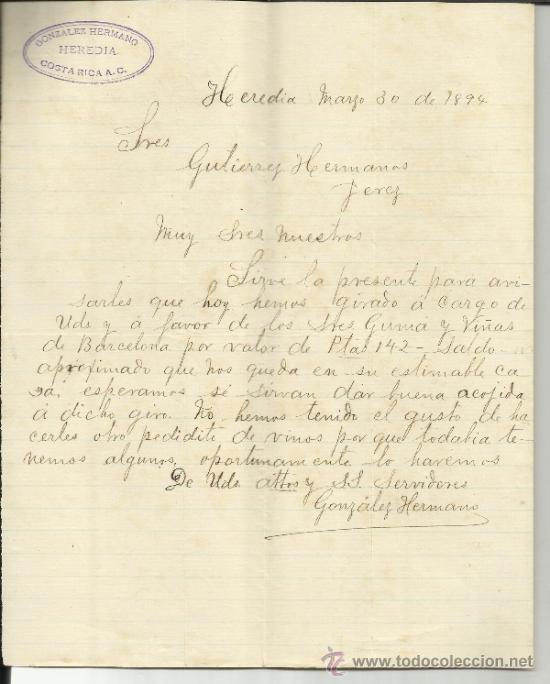 GONZALEZ HERMANO
HEREDIA
COSTA RICA A.C.
Heredia Marzo 30 de 1894
Sres
Gutierrez Hermanos
Jerez
Muy Sres nuestros
Sirve la presente para avi-
sarles que hoy hemos girado á cargo de
Uds y á favor de los Sres Guma y Viñas
de Barcelona por valor de Ptas 142 - Saldo
aproximado que nos queda en su estimable ca
sa, esperamos se sirvan dar buena acojida
á dicho giro. No hemos tenido el gusto de ha-
cerles otro pedidito de vinos por que todabia te-
nemos algunos, oportunamente lo haremos
De Uds attos y SS. Servidores
González Hermano
www.todocoleccion.net